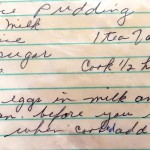 Pudding
Milk
1 tea
sugar
Cook 1/2 h
eggs in milk an
before you
when cool add